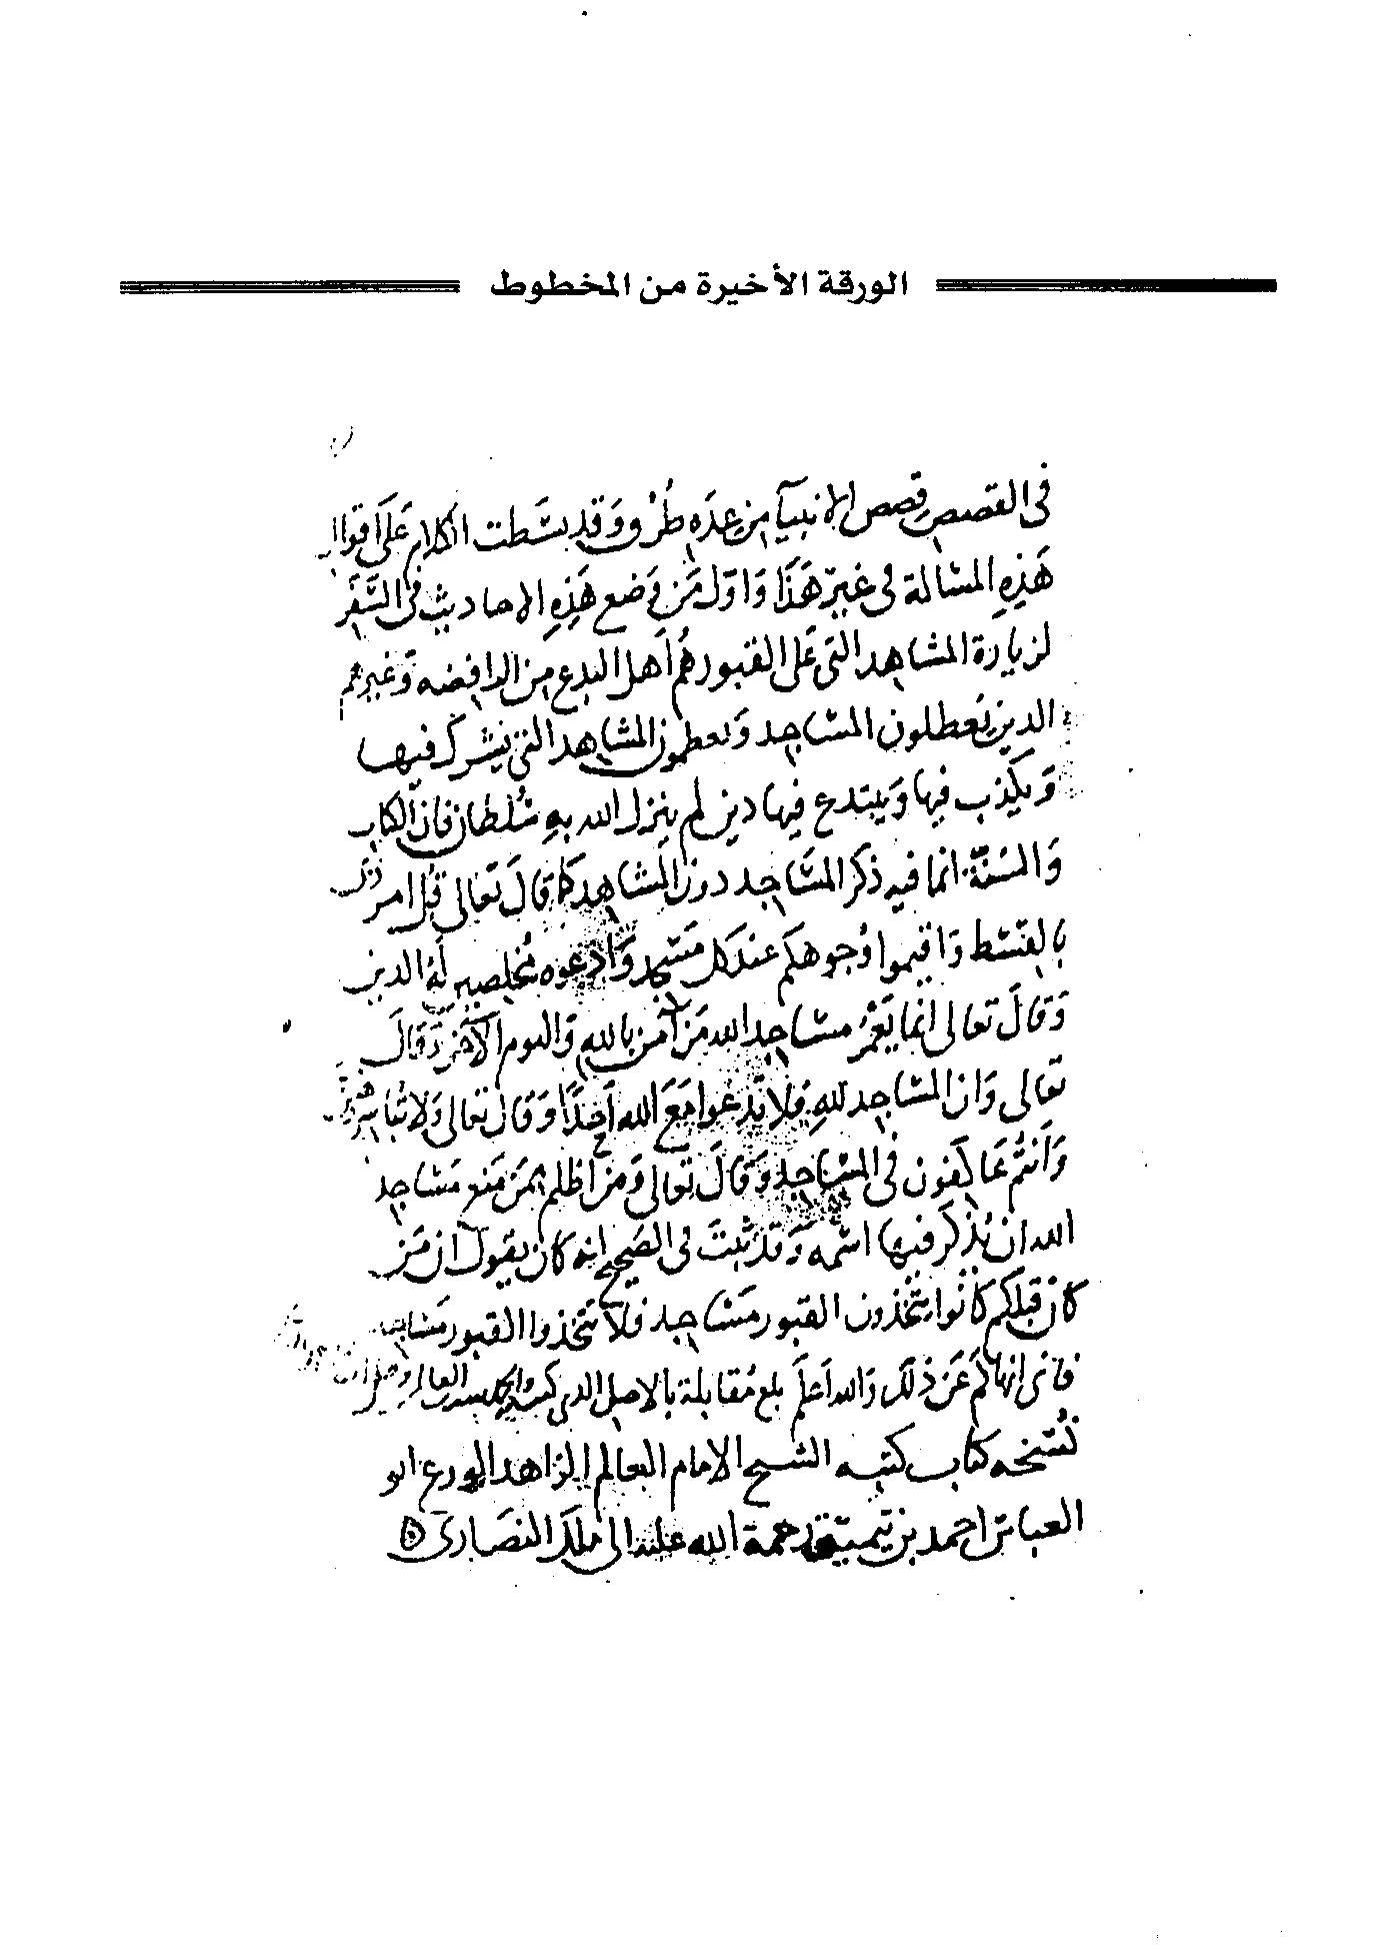 الورقة الأخيرة من المخطوط
فى القصص قصص الانبيآ من عدَه طُرُق وَقد بسَطت الكلام عَلَى اقوال
هَذِهِ المسالة فى غير هَذَا وَاوّل مَن وَضع هَذِهِ الاحاديث فى السَّفَر
لزيارة المشاهد التى عَلى القبور هُم أَهل البدع من الرافضه وَغيرهم
الذين يعَطلون المسَاجد وَيعظمون المشاهد التى يشرك فيها
وَيكذب فيها وَيبتدع فيها دين لم ينزل الله بهِ سُلطان فان الكتاب
وَالسُنّة انما فيه ذكر المسَاجد دون المشاهد كما قالَ تعَالى قُل امر ربى
بالقسْط وَاقيموا وُجوهكم عند كل مَسْجد وَادعوه مُخلصين لَهُ الدين
وَقالَ تعالى انما يَعْمُرُ مسَاجد الله مَن آمن بالله وَاليوم الآخر وَقالَ
تعَالى وَان المسَاجد للهِ فلا تَدعوا مَعَ الله احَدًا وَقالَ تعالى وَلا تُباشروهن
وَأَنتُم عَاكفون فى المساجد وَقالَ تعالى وَمن اظلم ممن مَنع مَسَاجد
الله ان يُذكَر فيها اسْمه وَقد ثبتَ فى الصَحيح انه كان يقول ان مَن
كانَ قبلكم كانُوا يتَّخذون القبور مَسَاجد فلا تتَّخذوا القبور مَساجد
فانى انهاكم عَن ذلكَ وَالله اعلم بلغ مُقابلة بالاصل الذى كتب
نُسْخه كتاب كتبه الشيخ الامام العالم الزاهد الورع ابو
العباس احمد بن تيميّة رحمة الله عليه الى ملك النصَارى